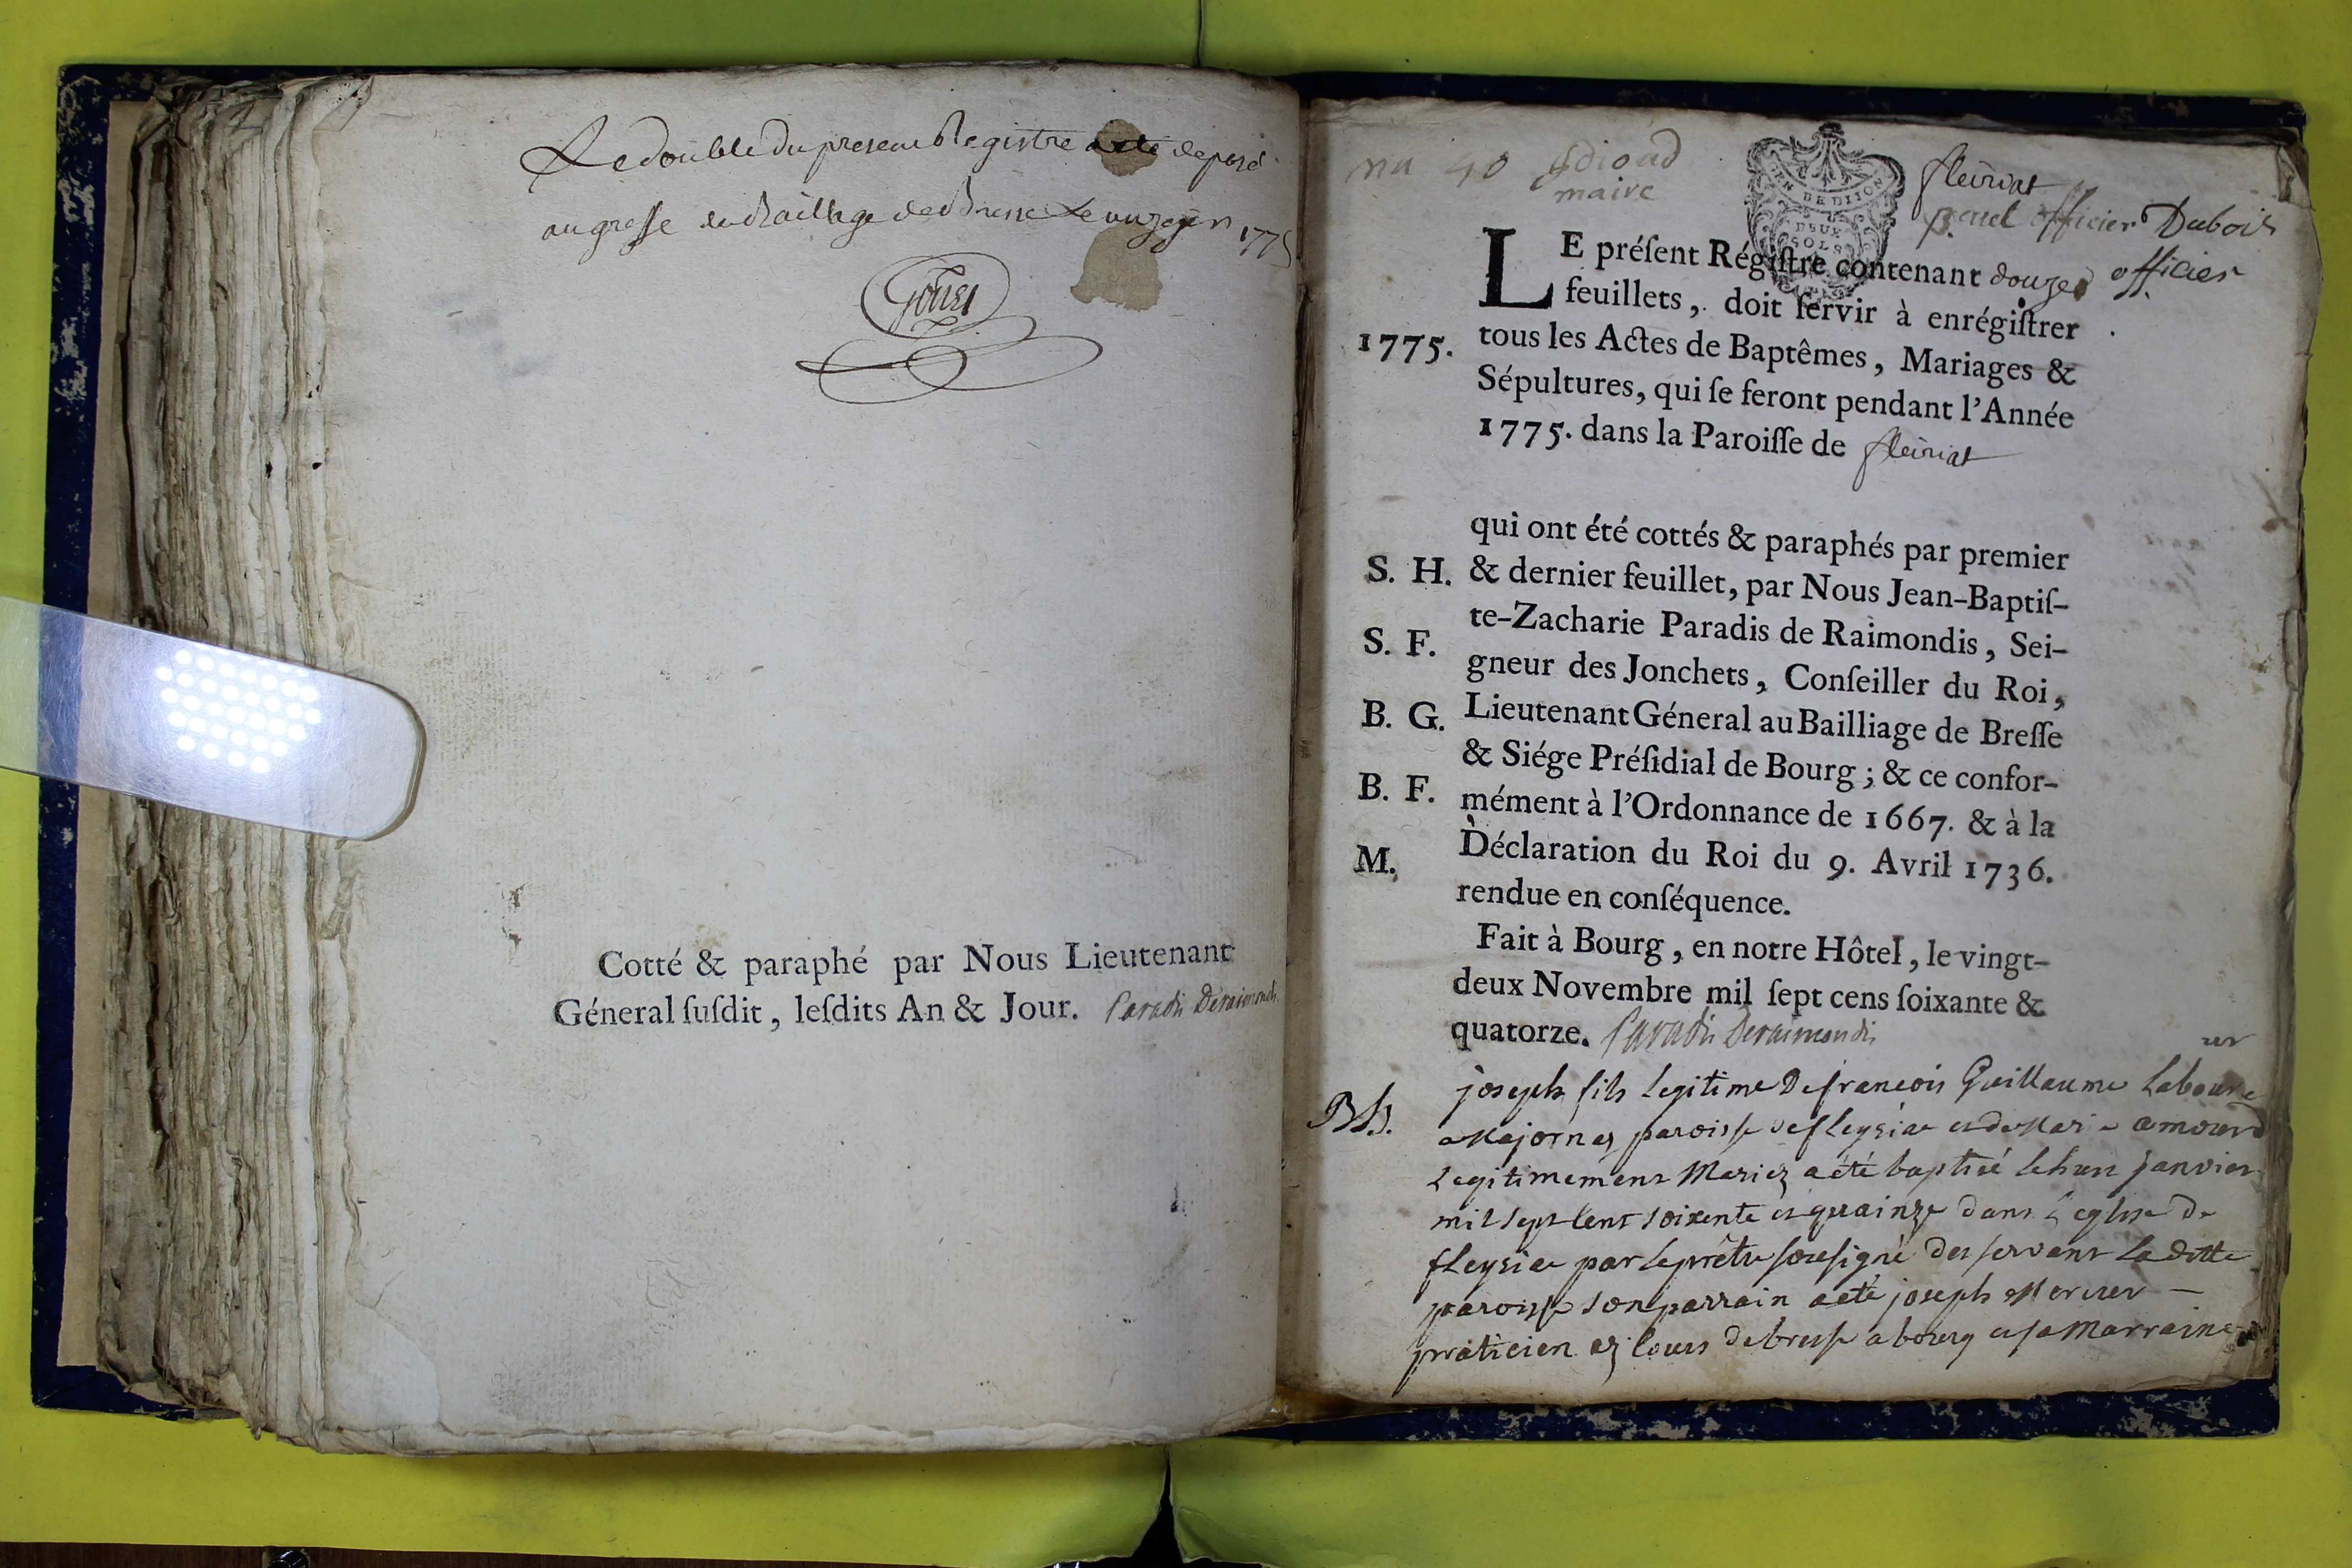 Le double du present Registre a eté deposé
au greffe du Bailliage de Bresse Le onze jer 1775
Cotté & paraphé par Nous Lieutenant
Géneral ſuſdit, leſdits An & Jour. Paradis Deraimondis
na 40 maire
fleiriat
officier Dubois
officier
GEN DE DIJON
DEUX
SOLS
LE préſent Régiſtre contenant douze
feuillets, doit ſervir à enrégiſtrer
1775. tous les Actes de Baptêmes, Mariages &
Sépultures, qui ſe feront pendant l'Année
1775. dans la Paroiſſe de fleiriat
qui ont été cottés & paraphés par premier
S. H. & dernier feuillet, par Nous Jean-Baptiſ-
te-Zacharie Paradis de Raimondis, Sei-
S. F. gneur des Jonchets, Conſeiller du Roi,
B. G. Lieutenant Géneral au Bailliage de Breſſe
& Siége Préſidial de Bourg; & ce confor-
B. F. mément à l'Ordonnance de 1667. & à la
M. Déclaration du Roi du 9. Avril 1736.
rendue en conſéquence.
Fait à Bourg, en notre Hôtel, le vingt-
deux Novembre mil ſept cens ſoixante &
quatorze. Paradis Deraimondis
joseph fils Legitime De francois Guillaume Laboureur
a Majornas paroisse de fleysia et de Marie amourd
Legitimement Mariez a été baptisé le huit janvier
mil sept cent soixente et quainze dans L'eglise de
fleysia par le prêtre sousigné desservant La ditte
paroisse son parrain a eté joseph Mercier
praticien ez Cours de bresse a bourg et sa Marraine